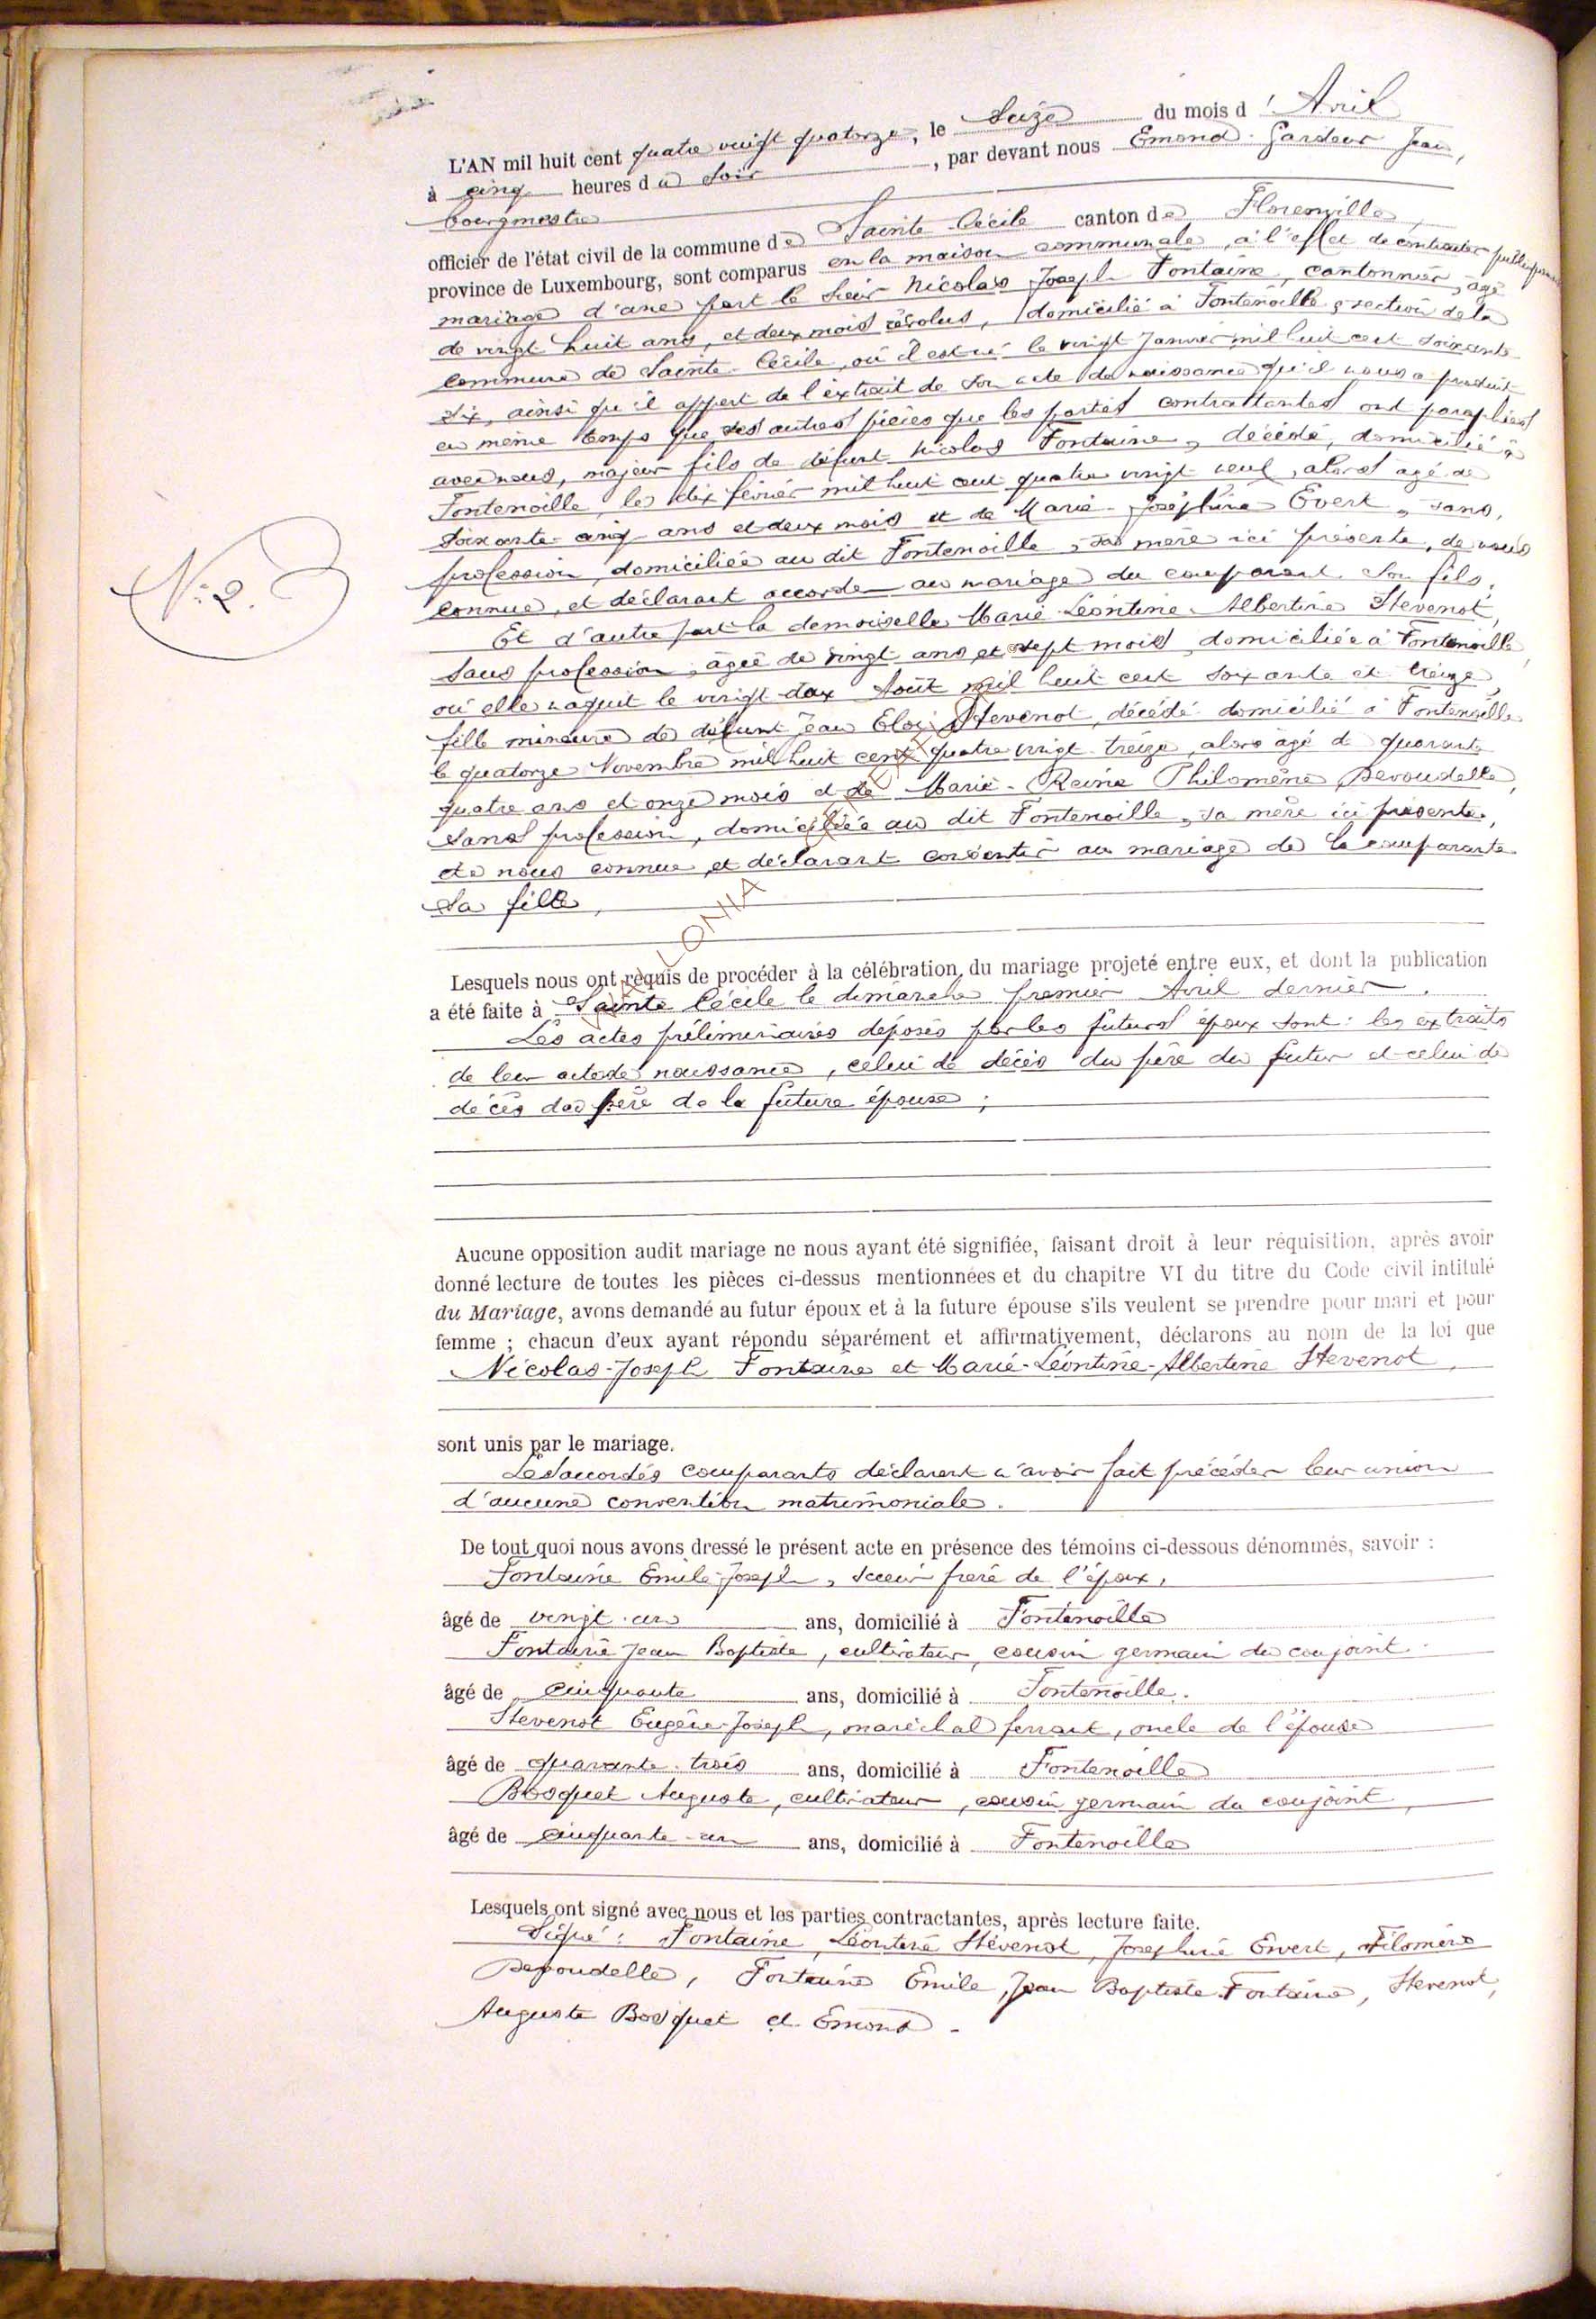 L'AN mil huit cent quatre vingt quatorze, le Seize du mois d'Avril
à cinq heures du Soir, par devant nous Emond-Gardeur Jean,
bourgmestre
officier de l'état civil de la commune de Sainte-Cécile canton de Florenville,
province de Luxembourg, sont comparus en la maison communale, à l'effet de contracter publiquement
mariage d'une part le Sieur Nicolas Joseph Fontaine, cantonnier, âgé
de vingt huit ans, et deux mois révolus, domicilié à Fontenoille, section de la
Commune de Sainte-Cécile, où il est né le vingt Janvier mil huit cent soixante
six, ainsi qu'il appert de l'extrait de son acte de naissance qu'il nous a produit
en même temps que les autres pièces que les parties contractantes ont paraphées
avec nous, majeur fils de défunt Nicolas Fontaine, décédé, domicilié à
Fontenoille, le dix février mil huit cent quatre vingt neuf, alors âgé de
soixante-cinq ans et deux mois et de Marie-Joséphine Evert, sans
profession, domiciliée au dit Fontenoille, sa mère ici présente, de nous
connue, et déclarant accorder au mariage du comparant son fils;
Et d'autre part la demoiselle Marie-Léontine-Albertine Stevenot,
sans profession, âgée de vingt ans et sept mois, domiciliée à Fontenoille,
où elle naquit le vingt-deux Août mil huit cent soixante et treize,
fille mineure de défunt Jean Eloi Stevenot, décédé domicilié à Fontenoille
le quatorze Novembre mil huit cent quatre vingt-treize, alors âgé de quarante
quatre ans et onze mois et de Marie-Reine Philomène Devoudelle,
sans profession, domiciliée au dit Fontenoille, sa mère ici présente,
de nous connue, et déclarant consentir au mariage de la comparante
sa fille,
Lesquels nous ont requis de procéder à la célébration du mariage projeté entre eux, et dont la publication
a été faite à Sainte Cécile le dimanche premier Avril dernier.
Les actes préliminaires déposés par les futurs époux sont: les extraits
de leur acte de naissance, celui de décès du père du futur et celui de
décès du père de la future épouse;
Aucune opposition audit mariage ne nous ayant été signifiée, faisant droit à leur réquisition, après avoir
donné lecture de toutes les pièces ci-dessus mentionnées et du chapitre VI du titre du Code civil intitulé
du Mariage, avons demandé au futur époux et à la future épouse s'ils veulent se prendre pour mari et pour
femme ; chacun d'eux ayant répondu séparément et affirmativement, déclarons au nom de la loi que
Nicolas-Joseph Fontaine et Marie-Léontine-Albertine Stevenot,
sont unis par le mariage.
Les accordés comparants déclarent n'avoir fait précéder leur union
d'aucune convention matrimoniale.
De tout quoi nous avons dressé le présent acte en présence des témoins ci-dessous dénommés, savoir :
Fontaine Emile-Joseph, frère de l'époux,
âgé de vingt-un ans, domicilié à Fontenoille
Fontaine Jean Baptiste, cultivateur, cousin germain du conjoint
âgé de cinquante ans, domicilié à Fontenoille.
Stevenot Eugène-Joseph, maréchal ferrant, oncle de l'épouse
âgé de quarante-trois ans, domicilié à Fontenoille
Bosquet Auguste, cultivateur, cousin germain du conjoint,
âgé de cinquante-un ans, domicilié à Fontenoille
Lesquels ont signé avec nous et les parties contractantes, après lecture faite.
Signé: Fontaine, Léontine Stévenot, Josephine Ewert, Filomène
Devoudelle, Fontaine Emile, Jean Baptiste Fontaine, Stevenot,
Auguste Bosquet et Emond.
N: 2.